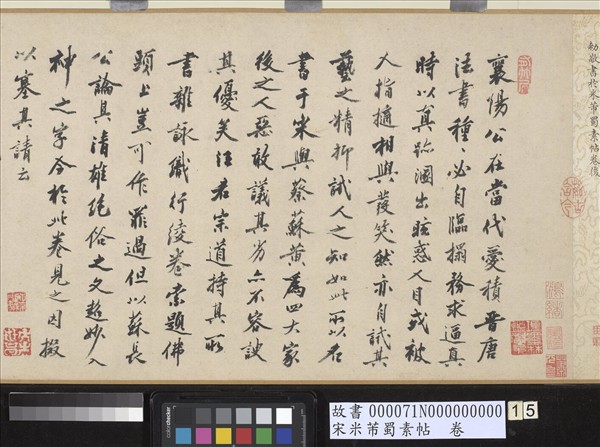 敬書於米芾蜀素帖卷後
襄陽公在當代愛積晉唐
法書種種必自臨搨務求逼真
時以真跡溷出眩惑人目或被
人指擿相與發笑然亦自試其
藝之精抑試人之知如此所以名
書于宋與蔡蘇黃為四大家
後之人惡敢議其劣亦不容諛
其優矣汪君宗道持其所
書雜詠織行綾卷索題佛
頭上豈可作罪過但以蘇長
公論其清雄絕俗之文超妙入
神之字今於此卷見之因掇
以塞其請云
故書 000071N000000000 15
宋米芾蜀素帖 卷